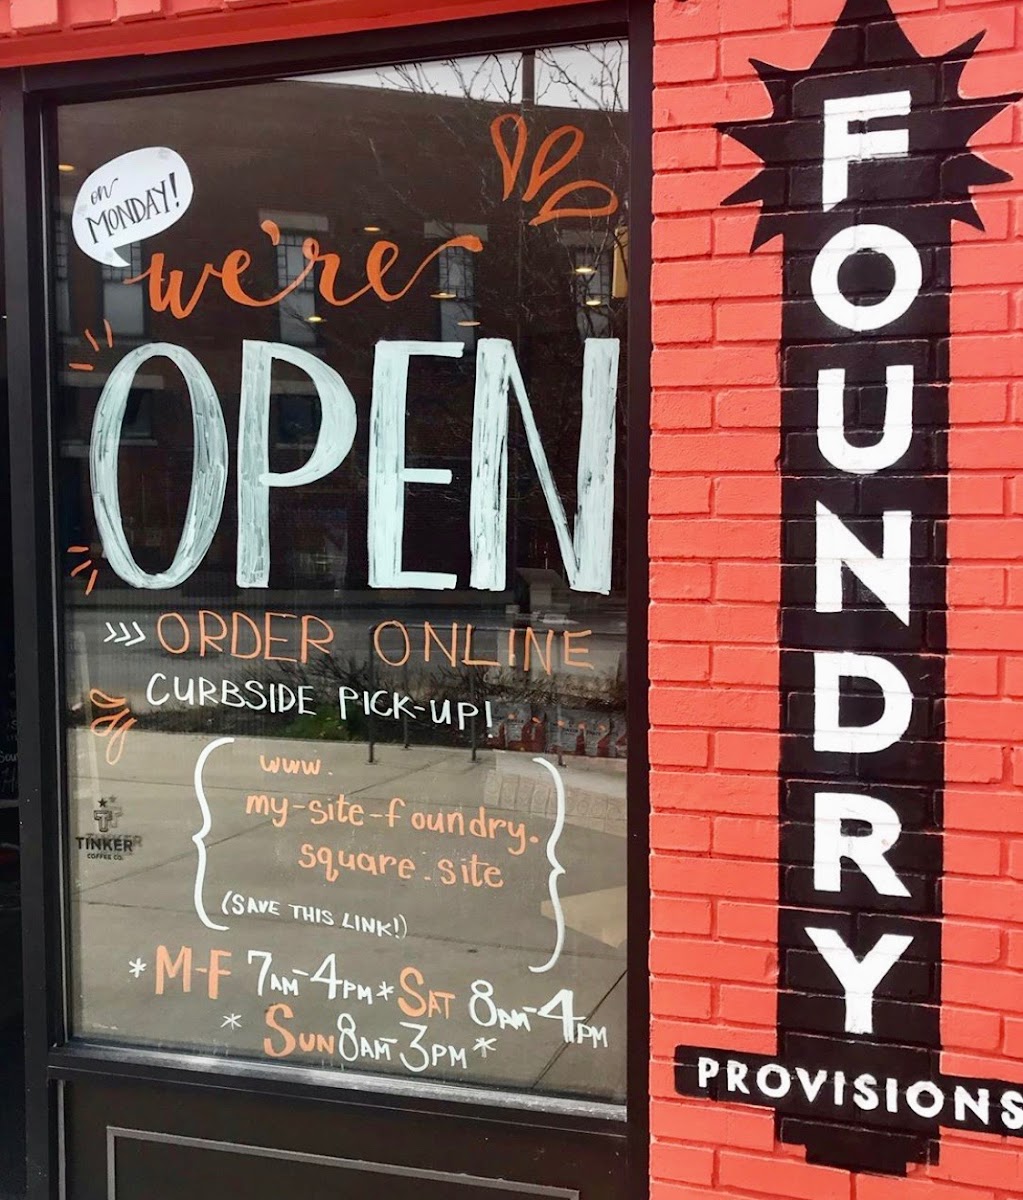 on
MONDAY!
we're
OPEN
>>> ORDER ONLINE
CURBSIDE PICK-UP!
www.
my-site-foundry.
square.site
(SAVE THIS LINK!)
* M-F 7AM-4PM * SAT 8AM-4PM
* SUN 8AM-3PM *
TT
TINKER
COFFEE CO.
FOUNDRY
PROVISIONS